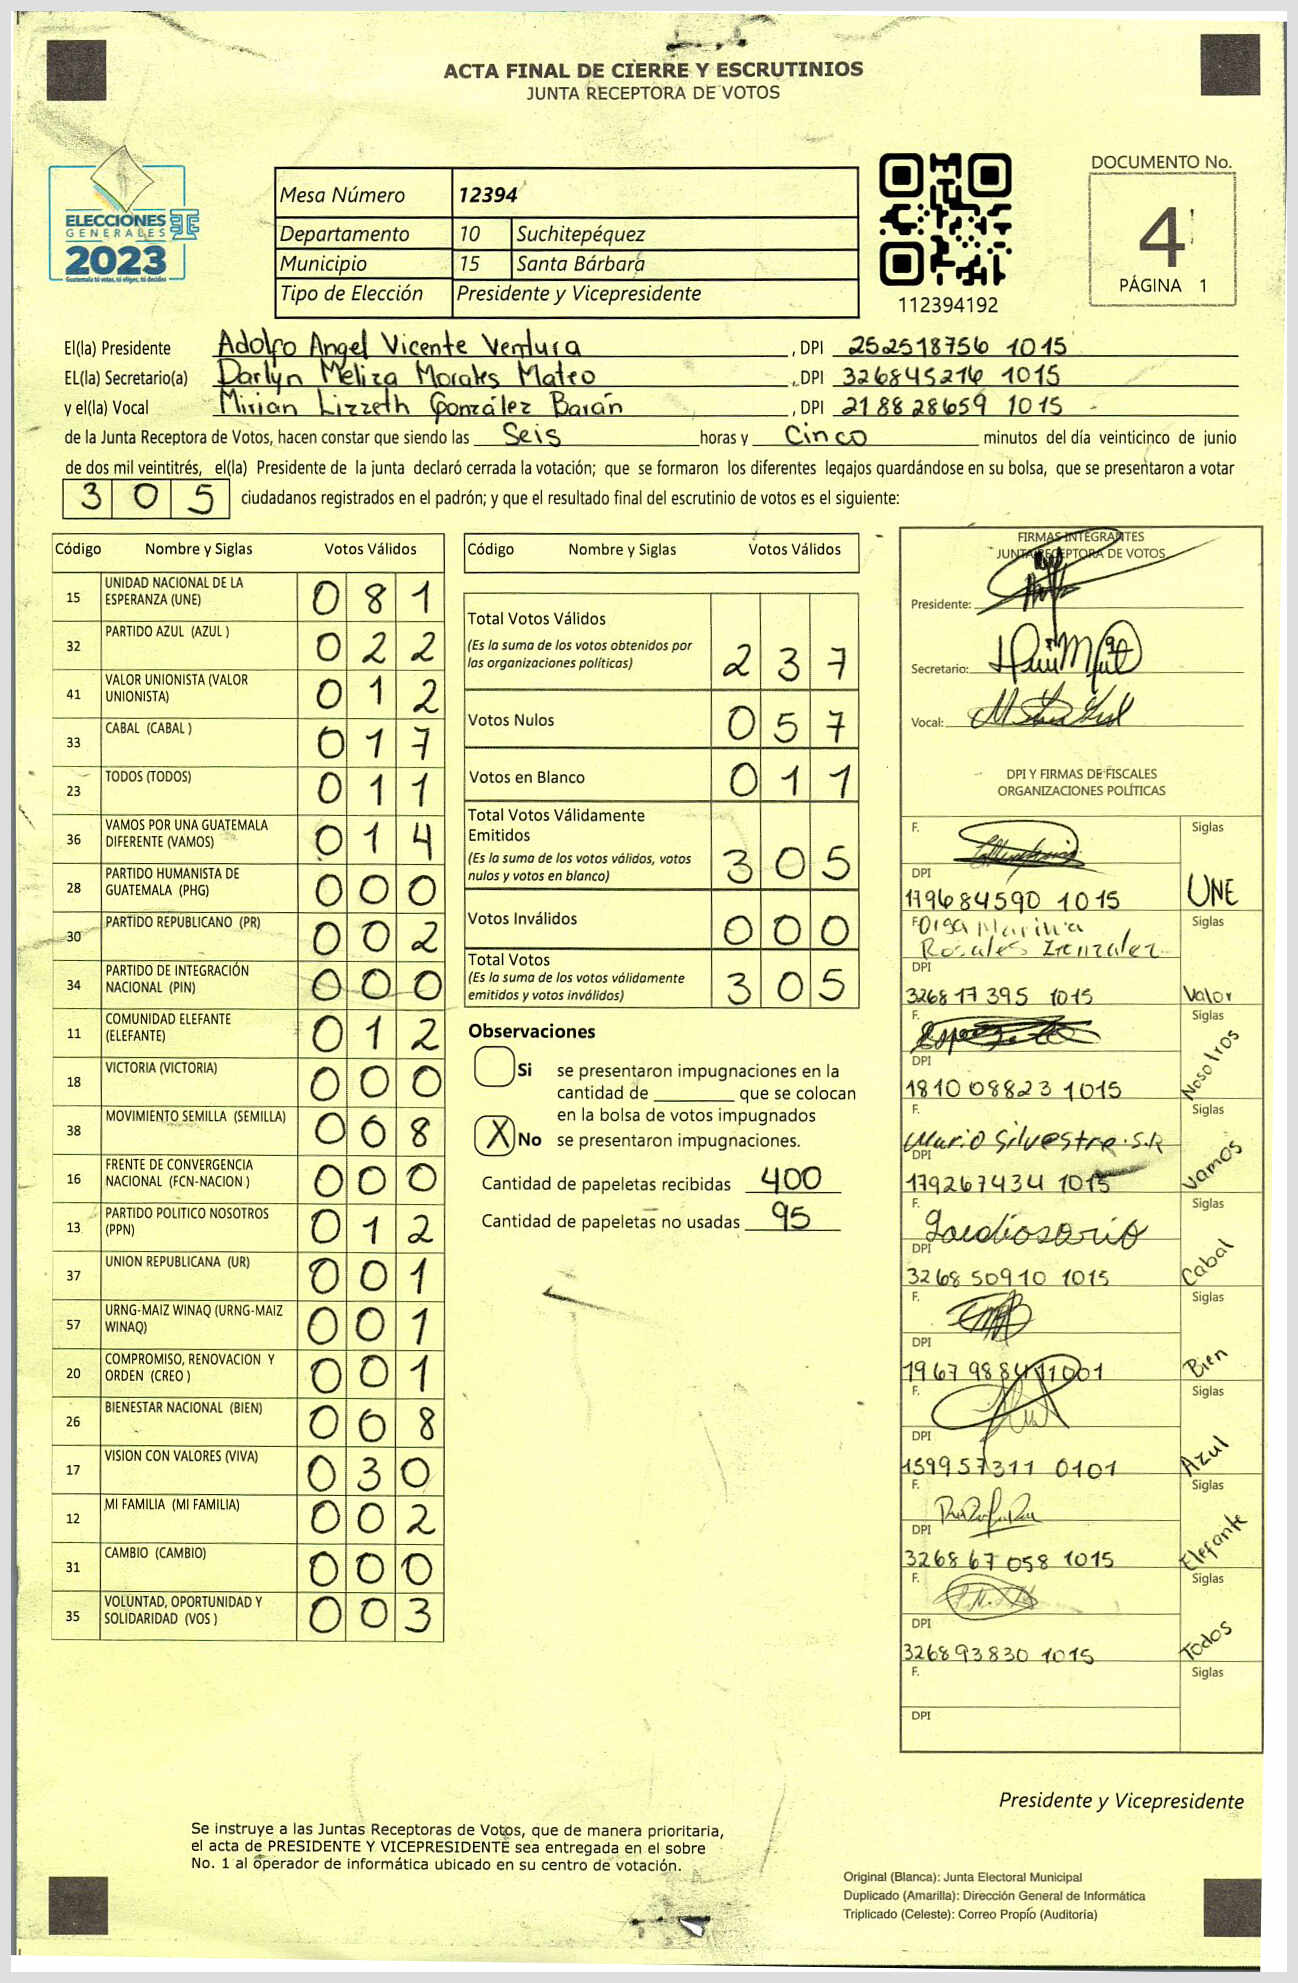 ACTA FINAL DE CIERRE Y ESCRUTINIOS
JUNTA RECEPTORA DE VOTOS
ELECCIONES
GENERALES
2023
Guatemala tú votas, tú eliges, tú decides
Mesa Número 12394
Departamento 10 Suchitepéquez
Municipio 15 Santa Bárbara
Tipo de Elección Presidente y Vicepresidente
112394192
DOCUMENTO No.
4
PÁGINA 1
El(la) Presidente Adolfo Angel Vicente Ventura , DPI 252518756 1015
EL(la) Secretario(a) Darlyn Meliza Morales Mateo , DPI 326845216 1015
y el(la) Vocal Mirian Lizzeth González Barán , DPI 218828659 1015
de la Junta Receptora de Votos, hacen constar que siendo las Seis horas y Cinco minutos del día veinticinco de junio
de dos mil veintitrés, el(la) Presidente de la junta declaró cerrada la votación; que se formaron los diferentes legajos guardándose en su bolsa, que se presentaron a votar
305 ciudadanos registrados en el padrón; y que el resultado final del escrutinio de votos es el siguiente:
Código Nombre y Siglas Votos Válidos
15 UNIDAD NACIONAL DE LA ESPERANZA (UNE) 081
32 PARTIDO AZUL (AZUL ) 022
41 VALOR UNIONISTA (VALOR UNIONISTA) 012
33 CABAL (CABAL ) 017
23 TODOS (TODOS) 011
36 VAMOS POR UNA GUATEMALA DIFERENTE (VAMOS) 014
28 PARTIDO HUMANISTA DE GUATEMALA (PHG) 000
30 PARTIDO REPUBLICANO (PR) 002
34 PARTIDO DE INTEGRACIÓN NACIONAL (PIN) 000
11 COMUNIDAD ELEFANTE (ELEFANTE) 012
18 VICTORIA (VICTORIA) 000
38 MOVIMIENTO SEMILLA (SEMILLA) 008
16 FRENTE DE CONVERGENCIA NACIONAL (FCN-NACION ) 000
13 PARTIDO POLITICO NOSOTROS (PPN) 012
37 UNION REPUBLICANA (UR) 001
57 URNG-MAIZ WINAQ (URNG-MAIZ WINAQ) 001
20 COMPROMISO, RENOVACION Y ORDEN (CREO ) 001
26 BIENESTAR NACIONAL (BIEN) 008
17 VISION CON VALORES (VIVA) 030
12 MI FAMILIA (MI FAMILIA) 002
31 CAMBIO (CAMBIO) 000
35 VOLUNTAD, OPORTUNIDAD Y SOLIDARIDAD (VOS ) 003
Código Nombre y Siglas Votos Válidos
Total Votos Válidos
(Es la suma de los votos obtenidos por
las organizaciones políticas) 237
Votos Nulos 057
Votos en Blanco 011
Total Votos Válidamente
Emitidos
(Es la suma de los votos válidos, votos
nulos y votos en blanco) 305
Votos Inválidos 000
Total Votos
(Es la suma de los votos válidamente
emitidos y votos inválidos) 305
Observaciones
Si se presentaron impugnaciones en la
cantidad de ________ que se colocan
en la bolsa de votos impugnados
X No se presentaron impugnaciones.
Cantidad de papeletas recibidas 400
Cantidad de papeletas no usadas 95
FIRMAS INTEGRANTES
JUNTA RECEPTORA DE VOTOS
Presidente:
Secretario:
Vocal:
DPI Y FIRMAS DE FISCALES
ORGANIZACIONES POLÍTICAS
F. Siglas
DPI
179684590 1015 UNE
F. Olga Marina Siglas
Rosales González
DPI
326817395 1015 Valor
F. Siglas
DPI
181008823 1015 Nosotros
F. Siglas
Mario Silvestre S.R
DPI
179267434 1015 Vamos
F. Siglas
DPI
326850910 1015 Cabal
F. Siglas
DPI
196798841 1001 Bien
F. Siglas
DPI
159957311 0101 Azul
F. Siglas
DPI
326867058 1015 Elefante
F. Siglas
DPI
326893830 1015 Todos
F. Siglas
DPI
Presidente y Vicepresidente
Se instruye a las Juntas Receptoras de Votos, que de manera prioritaria,
el acta de PRESIDENTE Y VICEPRESIDENTE sea entregada en el sobre
No. 1 al operador de informática ubicado en su centro de votación.
Original (Blanca): Junta Electoral Municipal
Duplicado (Amarilla): Dirección General de Informática
Triplicado (Celeste): Correo Propio (Auditoría)